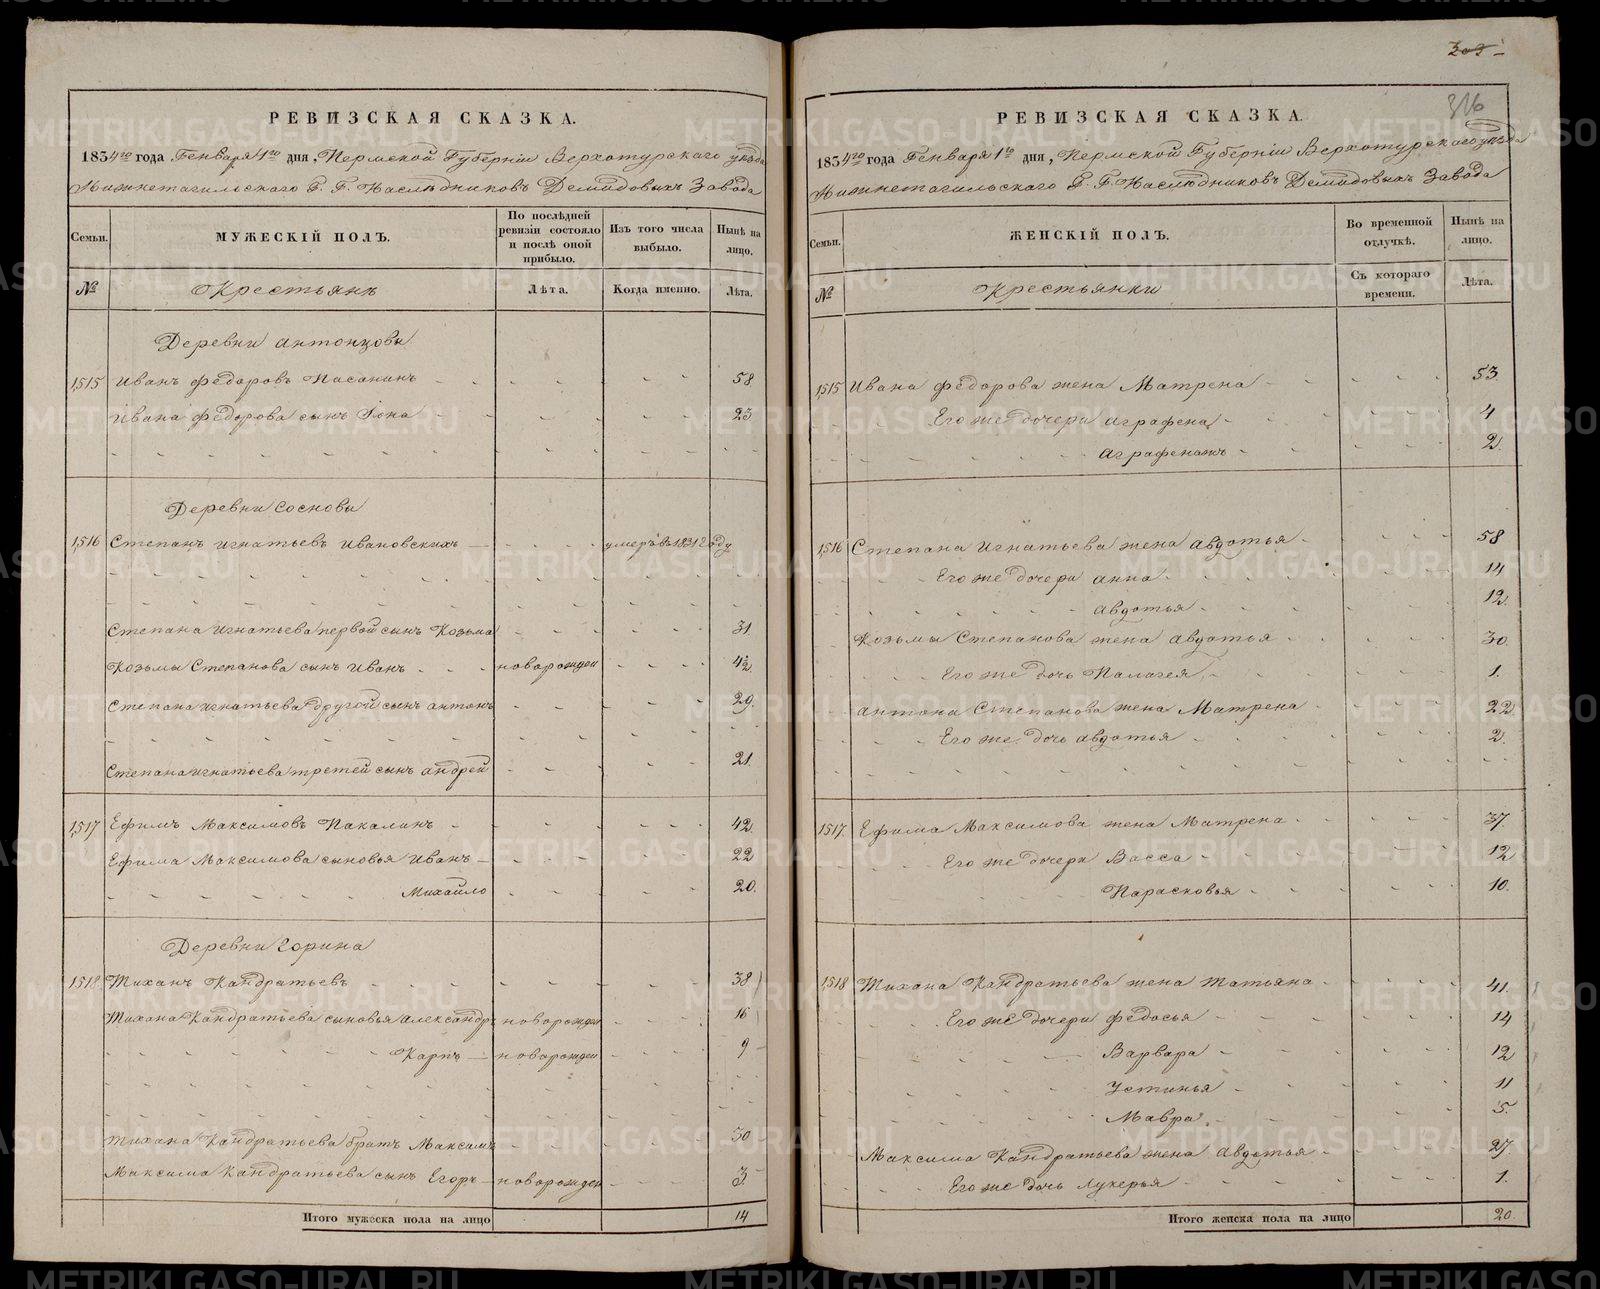 РЕВИЗСКАЯ СКАЗКА.
1834го года Генваря 1го дня, Пермской Губерніи Верхотурского уезда
Нижнетагильского Г. Г. Наслѣдниковъ Демидовыхъ Завода
Семьи. МУЖЕСКІЙ ПОЛЪ. По послѣдней ревизіи состояло и послѣ оной прибыло. Изъ того числа выбыло. Нынѣ на лицо.
№ Крестьянъ Лѣта. Когда именно. Лѣта.
Деревни антонцовы
1515 Иванъ федоровъ 58
Ивана федорова сынъ Іона 23
Деревни Сосновы
1516 Степанъ игнатьевъ ивановскихъ умеръ въ 1831 году
Степана игнатьева первой сынъ Козьма 31
Козьмы Степанова сынъ иванъ новорожден 4½
Степана игнатьева другой сынъ антонъ 29.
Степана игнатьева третей сынъ андрей 21.
1517 Ефимъ Максимовъ Пакалинъ 42.
Ефима Максимова сыновья иванъ 22
Михайло 20.
Деревни Горина
1518 Тиханъ Кандратьевъ 38
Тихана Кандратьева сыновья александръ новорожден 16
Карпъ новорожден 9
Тихана Кандратьева братъ Максимъ 30
Максима Кандратьева сынъ Егоръ новорожден 3.
Итого мужеска пола на лицо 14
303
316
РЕВИЗСКАЯ СКАЗКА.
1834го года Генваря 1го дня, Пермской Губерніи Верхотурского уезда
Нижнетагильского Г. Г. Наслѣдниковъ Демидовыхъ Завода
Семьи. ЖЕНСКІЙ ПОЛЪ. Во временной отлучкѣ. Нынѣ на лицо.
№ Крестьянки Съ котораго времени. Лѣта.
1515 Ивана федорова жена Матрена 53.
Его же дочери аграфена 4
аграфенажъ 2.
1516 Степана игнатьева жена авдотья 58
Его же дочери анна 14
авдотья 12.
Козьмы Степанова жена авдотья 30.
Его же дочь Палагея 1.
антона Степанова жена Матрена 22.
Его же дочь авдотья 2.
1517. Ефима Максимова жена Матрена 37.
Его же дочери Васса 12
Парасковья 10.
1518 Тихана Кандратьева жена татьяна 41.
Его же дочери федосья 14
Варвара 12
Устинья 11
Мавра 5.
Максима Кандратьева жена авдотья 27.
Его же дочь Лукерья 1.
Итого женска пола на лицо 20.
METRIKI.GASO-URAL.RU